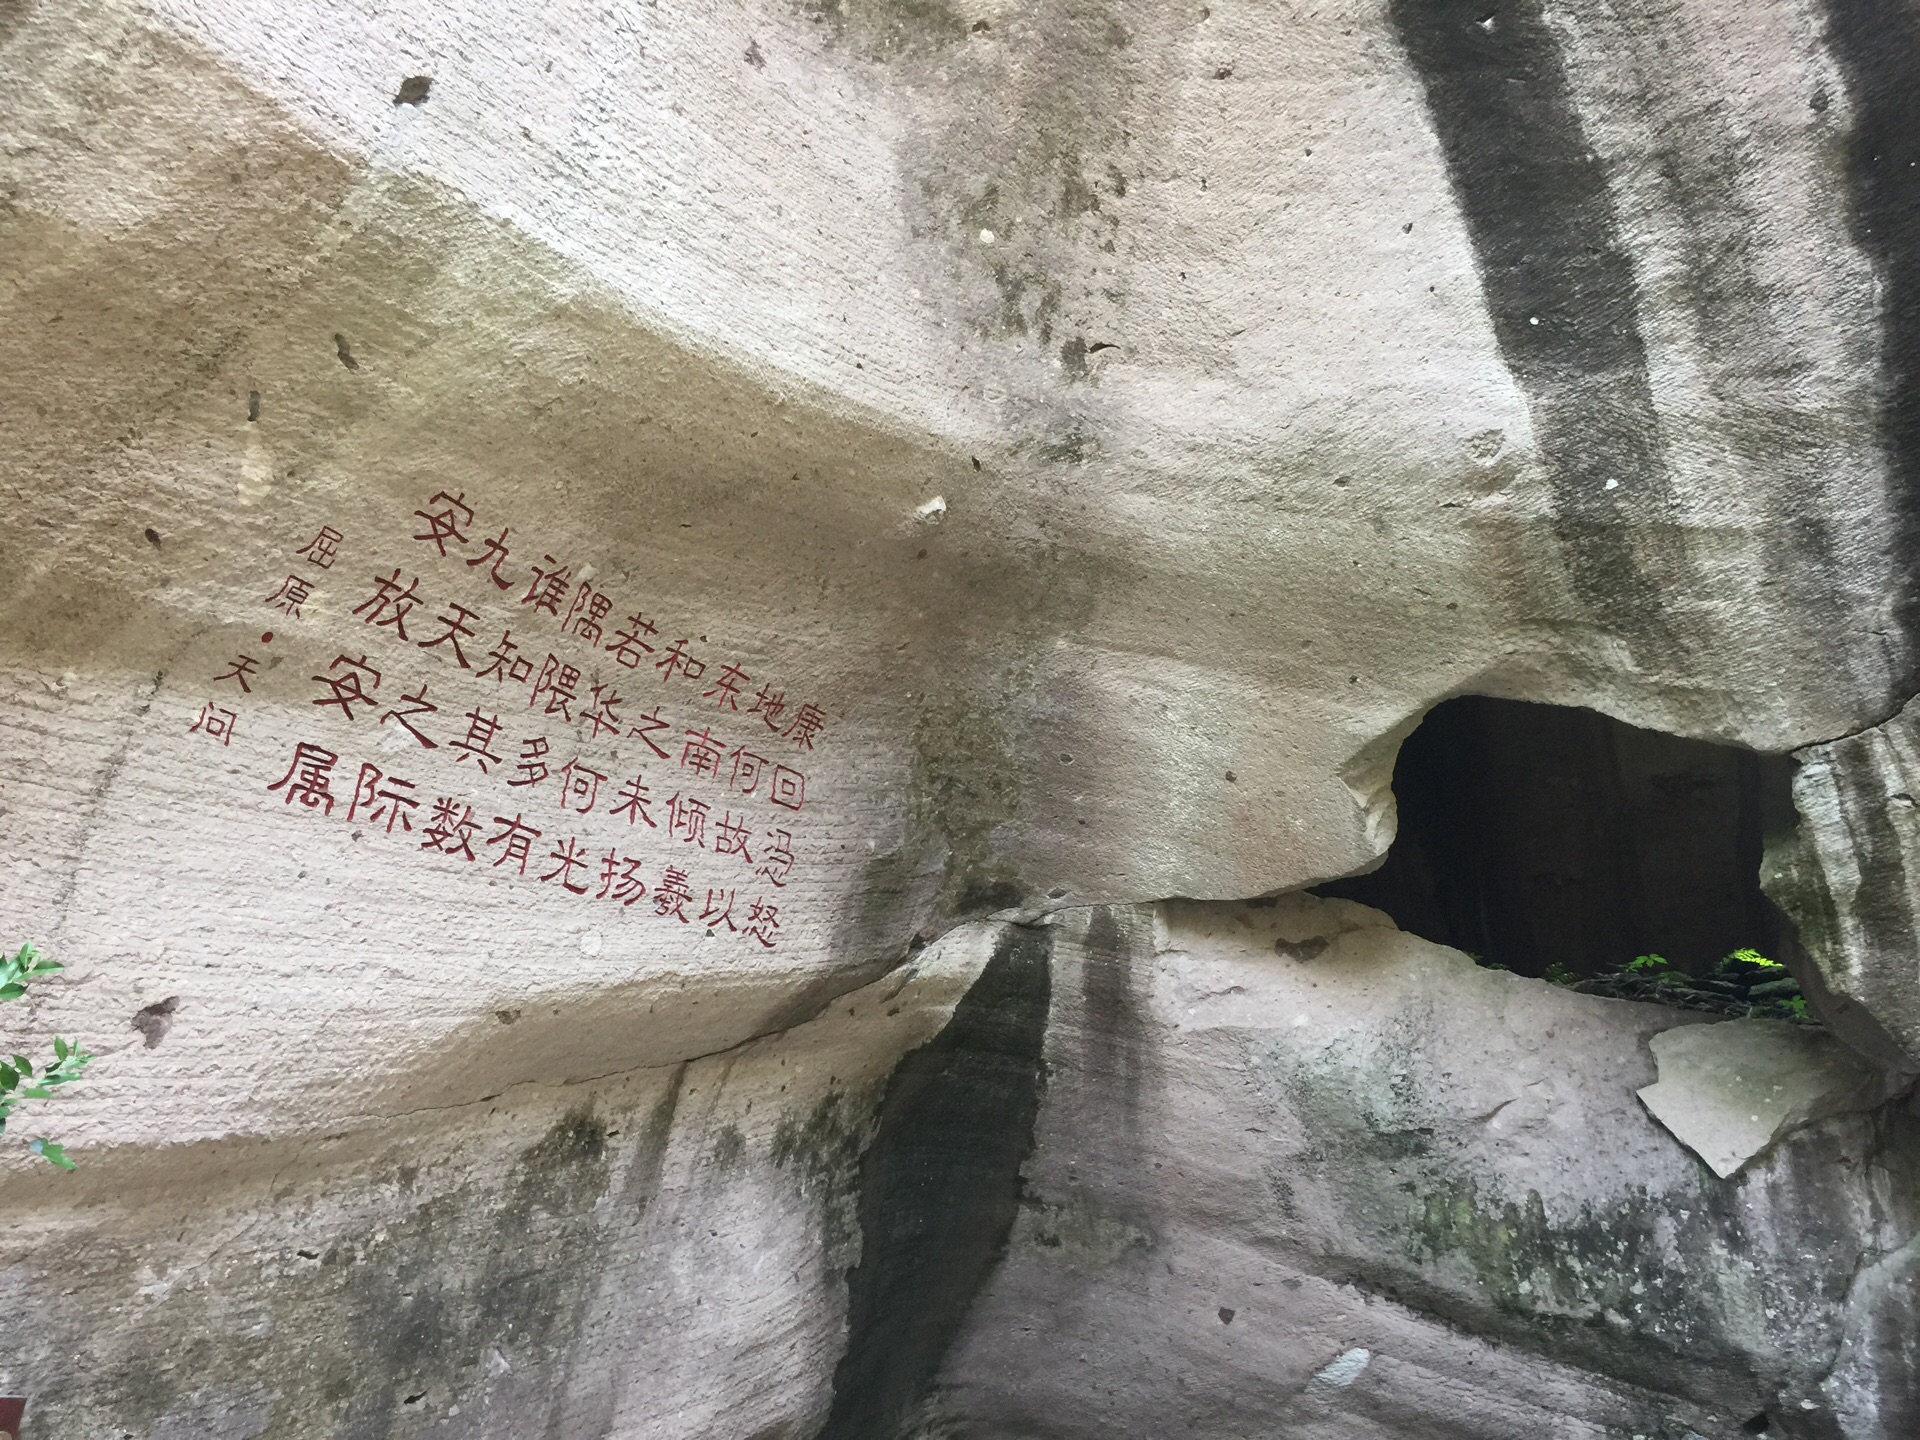 康回冯怒
地何故以
东南倾羲
和之未扬
若华何光
隅隈多有
谁知其数
九天之际
安放安属
屈原·天问